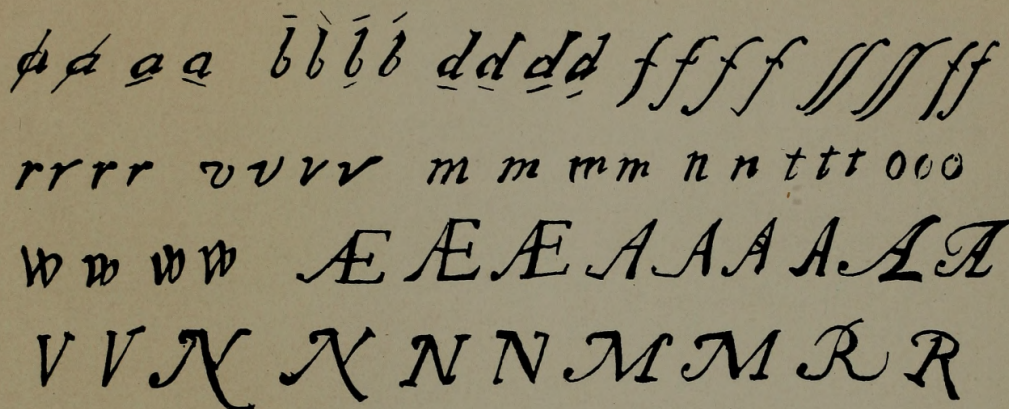 a a a a b b b b d d d d f f f f ff ff ff
r r r r v v v v m m m m n n t t t o o o
w w w w Æ Æ Æ A A A A A A
V V N N N N M M R R